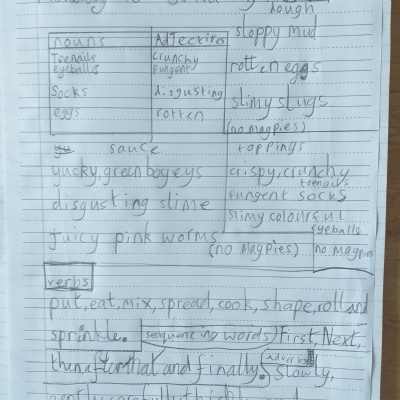 dough
nouns Adjectives sloppy mud
Teenails crunchy
eyeballs pungent rotten eggs
Socks disgusting slimy slugs
eggs rotten (no magpies)
sauce toppings
yucky, green bogeys crispy, crunchy
teenails
disgusting slime pungent socks
slimy colourful
eyeballs
juicy pink worms (no magpies) no magpies
verbs
put, eat, mix, spread, cook, shape, roll and
sprinkle. sequencing words) First, Next,
then after that and finally. adverbs slowly,